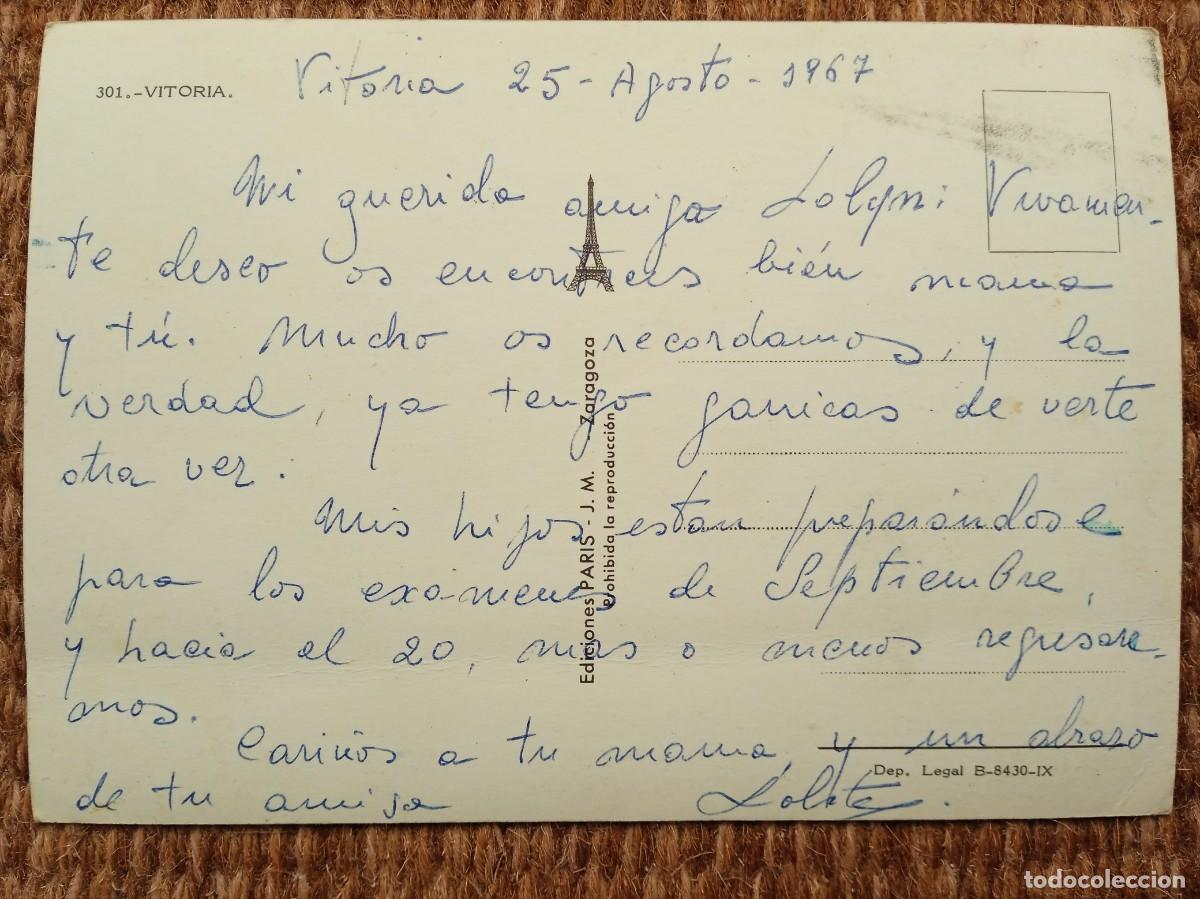 301.-VITORIA.
Vitoria 25 - Agosto - 1967
Mi querida amiga Lolyn: Vivamen-
te deseo os encontreis bién mama
y tú. Mucho os recordamos, y la
verdad, ya tengo ganicas de verte
otra vez.
Mis hijos estan preparándose
para los exámenes de Septiembre,
y hacia el 20, mas o menos regresare-
mos.
Cariños a tu mama, y un abrazo
de tu amiga Lolita.
Ediciones PARIS - J. M. - Zaragoza
Prohibida la reproducción
Dep. Legal B-8430-IX
todocoleccion